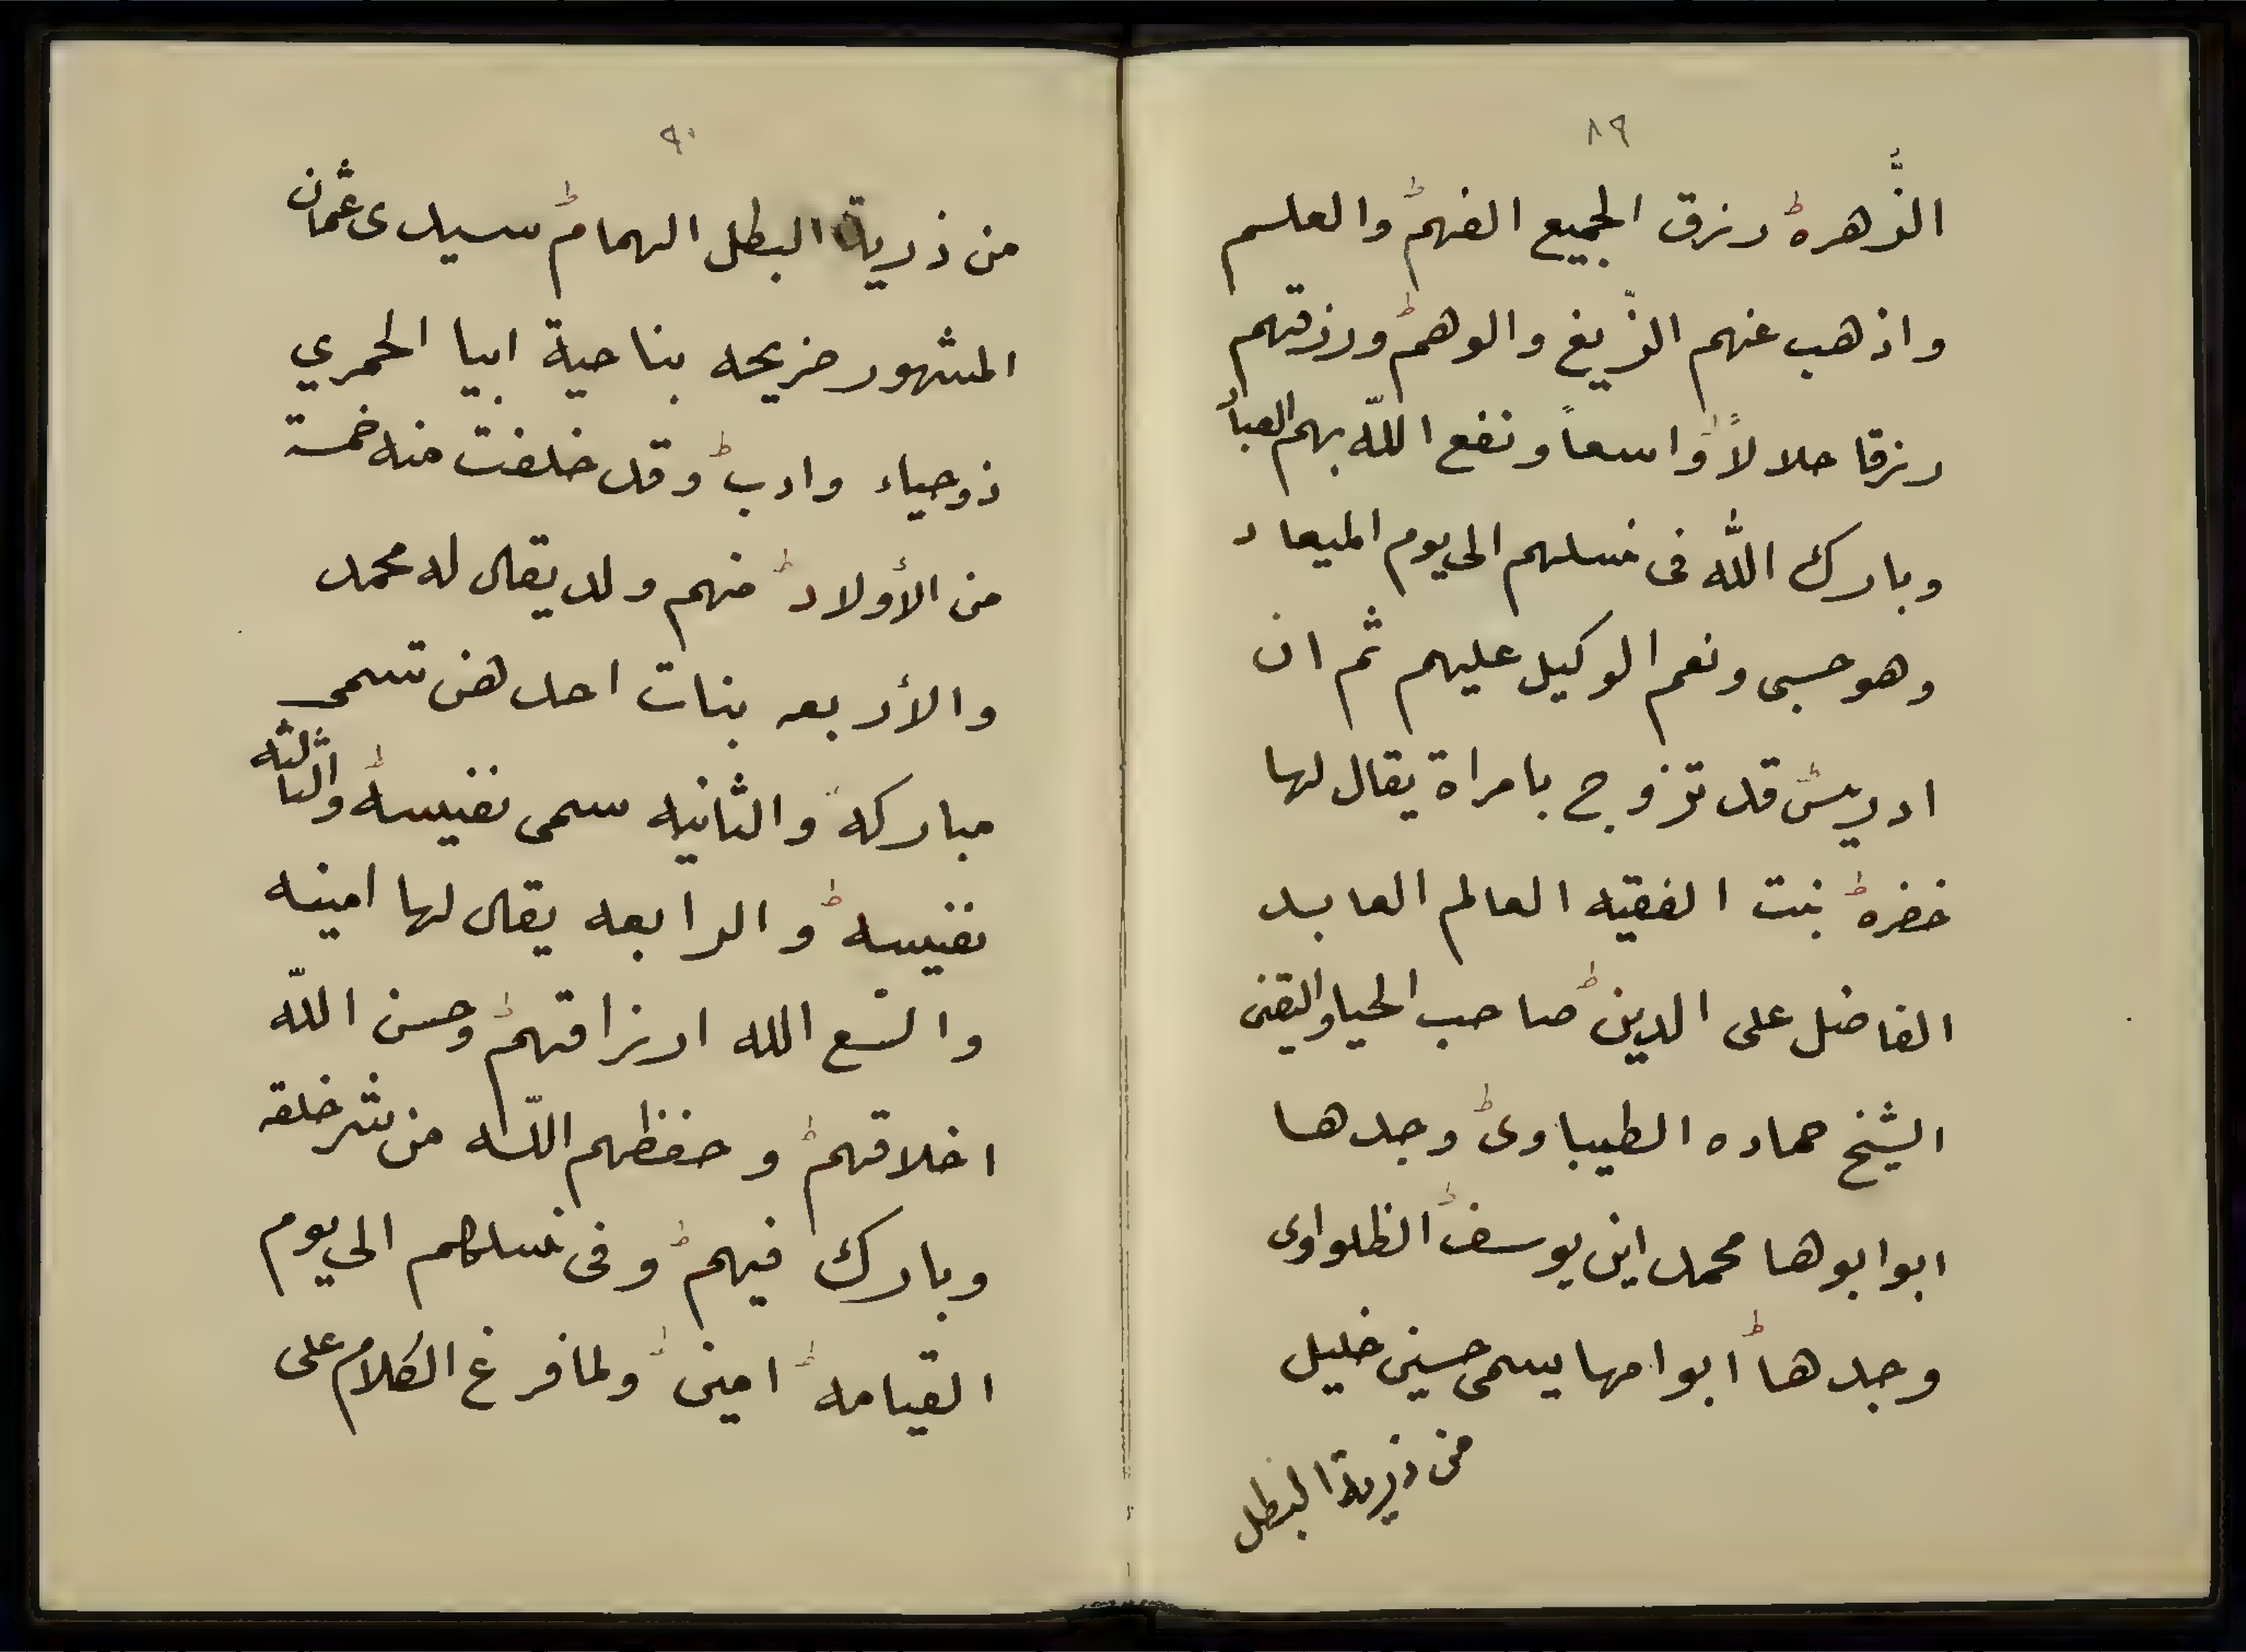 ٨٩
الزُّهره رزق الجميع الفهم والعلم
واذهب عنهم الزيغ والوهم ورزقهم
رزقا حلالاً واسعاً ونفع اللّه بهم العباد
وبارك اللّه فى نسلهم الى يوم الميعاد
وهو حسبى ونعم الوكيل عليهم ثم ان
ادريس قد تزوج بامراة يقال لها
خضره بنت الفقيه العالم العابد
الفاضل على الدين صاحب الحيا والتقى
الشيخ حماده الطيباوى وجدها
ابوابوها محمد ابن يوسف الظلواوى
وجدها ابوامها يسمى حسين خليل
من ذرية البطل
٩٠
من ذرية البطل الهمام سيدى عثمان
المشهور ضريحه بناحية ابيا الحمري
ذوحياء وادب وقد خلفت منه خمسة
من الأولاد منهم ولد يقال له محمد
والأربعه بنات احدهن تسمى
مباركة والثانيه سمى نفيسه والثالثه
نفيسه والرابعه يقال لها امينه
والسع الله ارزاقهم وحسن اللّه
اخلاقهم وحفظهم اللّه من شر خلقه
وبارك فيهم وفى نسلهم الى يوم
القيامه امين ولما فرغ الكلام على